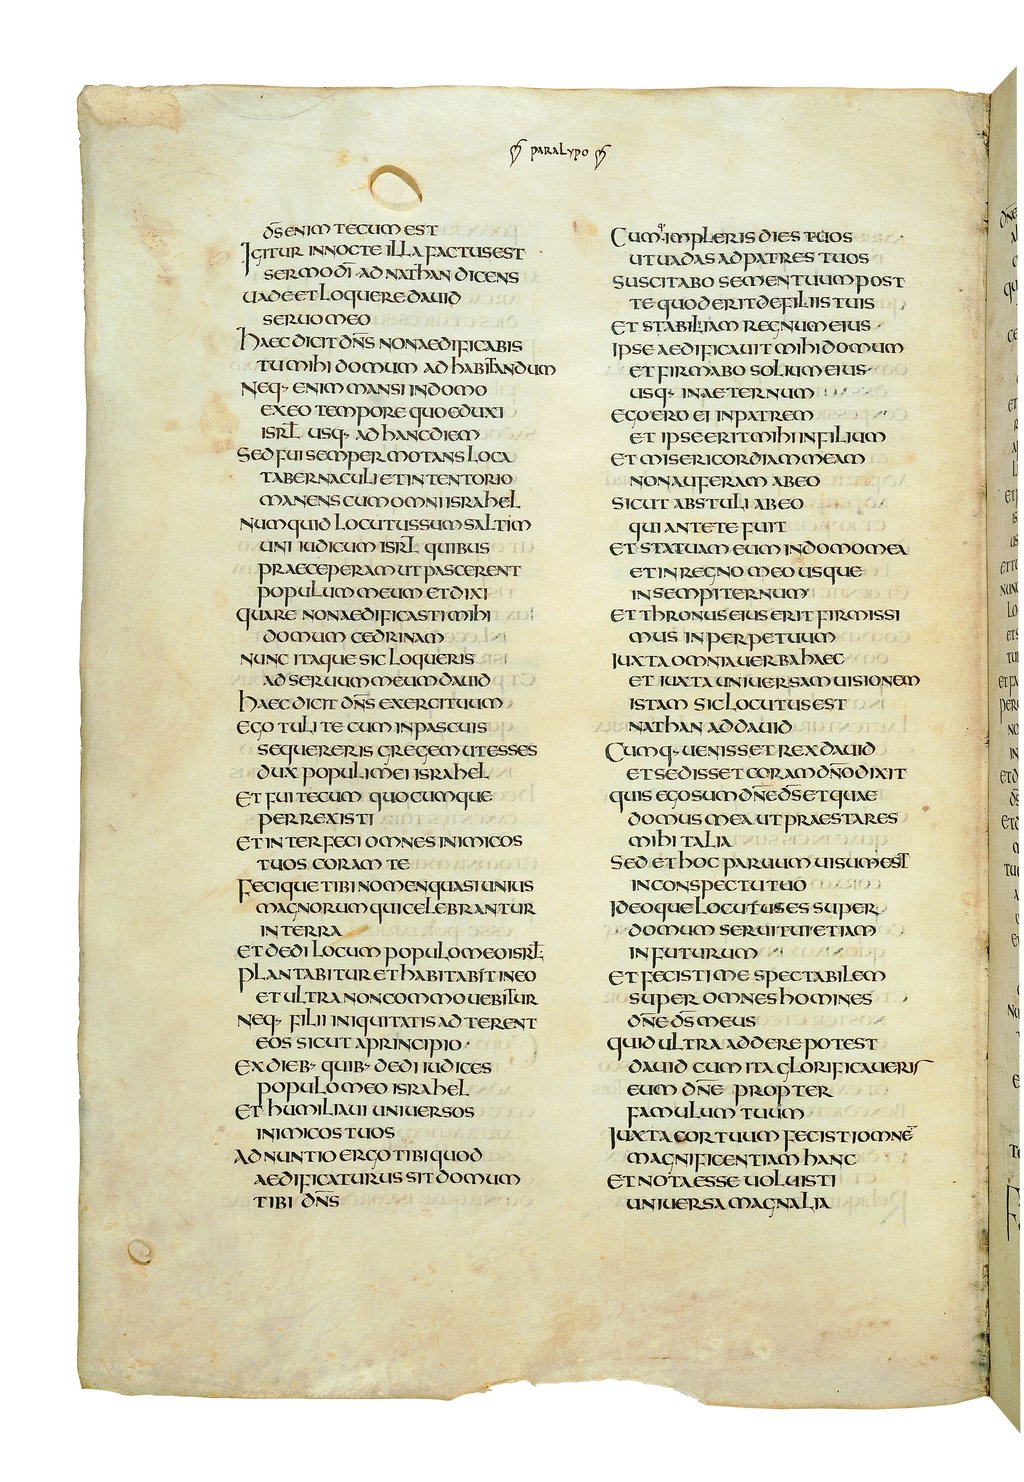 PARALYPO
D̅S̅ ENIM TECUM EST
IGITUR IN NOCTE ILLA FACTUS EST
SERMO DI AD NATHAN DICENS
UADE ET LOQUERE DAUID
SERUO MEO
HAEC DICIT D̅N̅S̅ NON AEDIFICABIS
TU MIHI DOMUM AD HABITANDUM
NEQ· ENIM MANSI IN DOMO
EX EO TEMPORE QUO EDUXI
ISRL̅ USQ· AD HANC DIEM
SED FUI SEMPER MOTANS LOCA
TABERNACULI ET IN TENTORIO
MANENS CUM OMNI ISRAHEL
NUMQUID LOCUTUS SUM SALTIM
UNI IUDICUM ISRL̅ QUIBUS
PRAECEPERAM UT PASCERENT
POPULUM MEUM ET DIXI
QUARE NON AEDIFICASTI MIHI
DOMUM CEDRINAM
NUNC ITAQUE SIC LOQUERIS
AD SERUUM MEUM DAUID
HAEC DICIT D̅N̅S̅ EXERCITUUM
EGO TULI TE CUM IN PASCUIS
SEQUERERIS GREGEM UT ESSES
DUX POPULI MEI ISRAHEL
ET FUI TECUM QUOCUMQUE
PERREXISTI
ET INTERFECI OMNES INIMICOS
TUOS CORAM TE
FECIQUE TIBI NOMEN QUASI UNIUS
MAGNORUM QUI CELEBRANTUR
IN TERRA
ET DEDI LOCUM POPULO MEO ISRL̅
PLANTABITUR ET HABITABIT IN EO
ET ULTRA NON COMMOUEBITUR
NEQ· FILII INIQUITATIS ADTERENT
EOS SICUT A PRINCIPIO·
EX DIEB· QUIB· DEDI IUDICES
POPULO MEO ISRAHEL
ET HUMILIAUI UNIUERSOS
INIMICOS TUOS
ADNUNTIO ERGO TIBI QUOD
AEDIFICATURUS SIT DOMUM
TIBI D̅N̅S̅
CUMQ· IMPLERIS DIES TUOS
UT UADAS AD PATRES TUOS
SUSCITABO SEMEN TUUM POST
TE QUOD ERIT DE FILIIS TUIS
ET STABILIAM REGNUM EIUS
IPSE AEDIFICAUIT MIHI DOMUM
ET FIRMABO SOLIUM EIUS
USQ· IN AETERNUM
EGO ERO EI IN PATREM
ET IPSE ERIT MIHI IN FILIUM
ET MISERICORDIAM MEAM
NON AUFERAM AB EO
SICUT ABSTULI AB EO
QUI ANTE TE FUIT
ET STATUAM EUM IN DOMO MEA
ET IN REGNO MEO USQUE
IN SEMPITERNUM
ET THRONUS EIUS ERIT FIRMISSI
MUS IN PERPETUUM
IUXTA OMNIA UERBA HAEC
ET IUXTA UNIUERSAM UISIONEM
ISTAM SIC LOCUTUS EST
NATHAN AD DAUID
CUMQ· UENISSET REX DAUID
ET SEDISSET CORAM D̅N̅O̅ DIXIT
QUIS EGO SUM D̅N̅E̅ D̅S̅ ET QUAE
DOMUS MEA UT PRAESTARES
MIHI TALIA
SED ET HOC PARUUM UISUM EST
IN CONSPECTU TUO
IDEOQUE LOCUTUS ES SUPER
DOMUM SERUI TUI ETIAM
IN FUTURUM
ET FECISTI ME SPECTABILEM
SUPER OMNES HOMINES
D̅N̅E̅ D̅S̅ MEUS
QUID ULTRA ADDERE POTEST
DAUID CUM ITA GLORIFICAUERIS
EUM D̅N̅E̅ PROPTER
FAMULUM TUUM
IUXTA COR TUUM FECISTI OMNE̅
MAGNIFICENTIAM HANC
ET NOTA ESSE UOLUISTI
UNIUERSA MAGNALIA